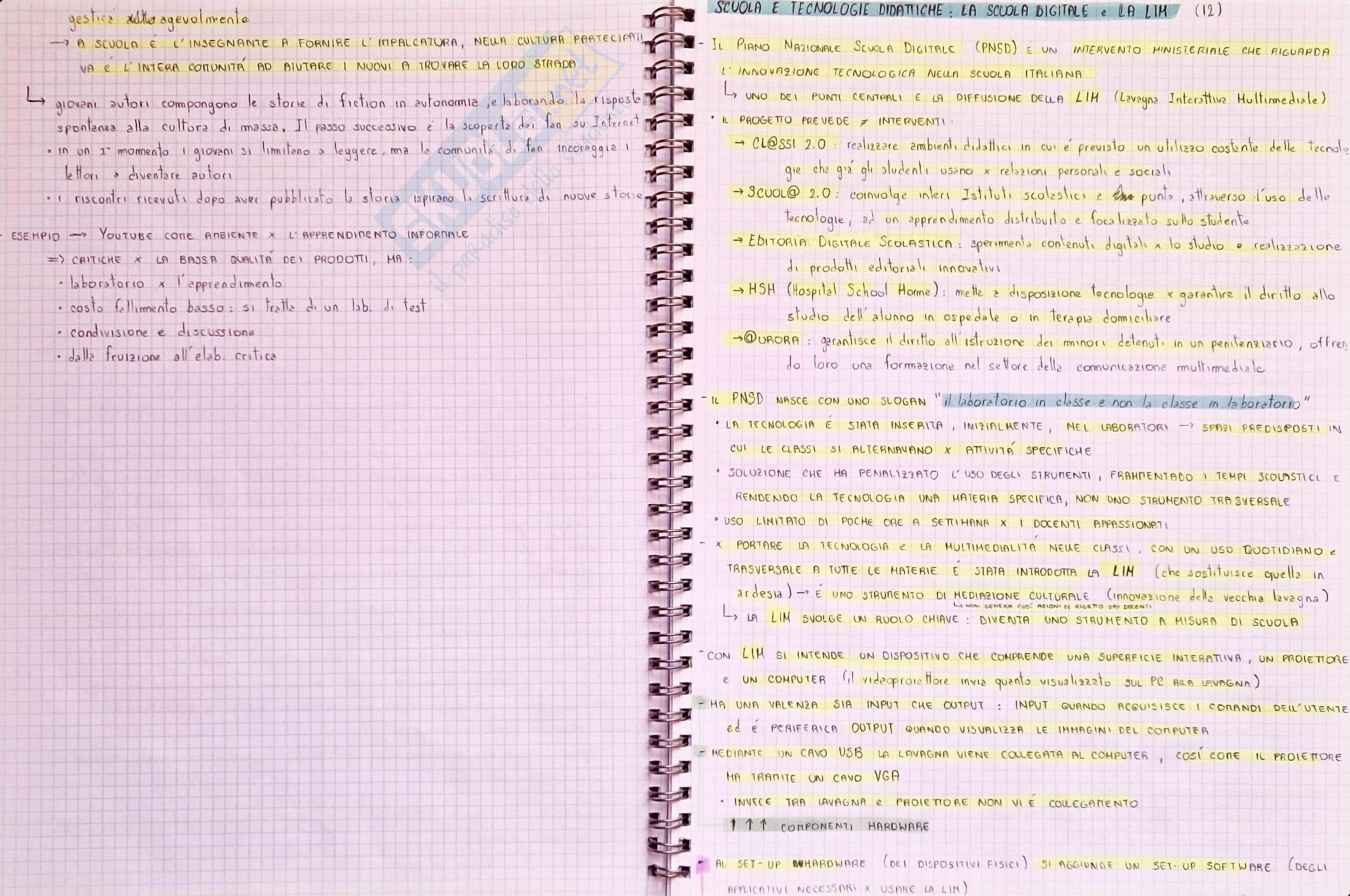 gestirà agevolmente
→ A SCUOLA È L'INSEGNANTE A FORNIRE L'IMPALCATURA, NELLA CULTURA PARTECIPATI
VA È L'INTERA COMUNITÁ AD AIUTARE I NUOVI A TROVARE LA LORO STRADA
↳ giovani autori compongono le storie di fiction in autonomia, elaborando la risposta
spontanea alla cultura di massa. Il passo successivo è la scoperta dei fan su Internet
• in un 1° momento i giovani si limitano a leggere, ma la comunità di fan incoraggia i
lettori a diventare autori
• i riscontri ricevuti dopo aver pubblicato la storia, ispirano la scrittura di nuove storie
- ESEMPIO → YOUTUBE COME AMBIENTE x L'APPRENDIMENTO INFORMALE
=> CRITICHE x LA BASSA QUALITÁ DEI PRODOTTI, MA:
• laboratorio x l'apprendimento
• costo fallimento basso: si tratta di un lab. di test
• condivisione e discussione
• dalla fruizione all'elab. critica
SCUOLA E TECNOLOGIE DIDATTICHE: LA SCUOLA DIGITALE e LA LIM (12)
- IL PIANO NAZIONALE SCUOLA DIGITALE (PNSD) È UN INTERVENTO MINISTERIALE CHE RIGUARDA
L'INNOVAZIONE TECNOLOGICA NELLA SCUOLA ITALIANA
↳ UNO DEI PUNTI CENTRALI È LA DIFFUSIONE DELLA LIM (Lavagna Interattiva Multimediale)
• IL PROGETTO PREVEDE ≠ INTERVENTI:
→ CL@SSI 2.0: realizzare ambienti didattici in cui é previsto un utilizzo costante delle tecnolo
gie che giá gli studenti usano x relazioni personali e sociali
→ SCUOL@ 2.0: coinvolge interi Istituti scolastici e punta, attraverso l'uso delle
tecnologie, ad un apprendimento distribuito e focalizzato sullo studente
→ EDITORIA DIGITALE SCOLASTICA: sperimenta contenuti digitali x lo studio e realizzazione
di prodotti editoriali innovativi
→ HSH (Hospital School Home): mette a disposizione tecnologie x garantire il diritto allo
studio dell'alunno in ospedale o in terapia domiciliare
→ @URORA: garantisce il diritto all'istruzione dei minori detenuti in un penitenziario, offren
do loro una formazione nel settore della comunicazione multimediale
- IL PNSD NASCE CON UNO SLOGAN "il laboratorio in classe e non la classe in laboratorio"
• LA TECNOLOGIA É STATA INSERITA, INIZIALMENTE, NEI LABORATORI → SPAZI PREDISPOSTI IN
CUI LE CLASSI SI ALTERNAVANO x ATTIVITÁ SPECIFICHE
• SOLUZIONE CHE HA PENALIZZATO L'USO DEGLI STRUMENTI, FRAMMENTADO I TEMPI SCOLASTICI E
RENDENDO LA TECNOLOGIA UNA MATERIA SPECIFICA, NON UNO STRUMENTO TRASVERSALE
• USO LIMITATO DI POCHE ORE A SETTIMANA x I DOCENTI APPASSIONATI
- x PORTARE LA TECNOLOGIA e LA MULTIMEDIALITÁ NELLE CLASSI, CON UN USO QUOTIDIANO e
TRASVERSALE A TUTTE LE MATERIE É STATA INTRODOTTA LA LIM (che sostituisce quella in
ardesia) → É UNO STRUMENTO DI MEDIAZIONE CULTURALE (innovazione della vecchia lavagna)
↳ NON GENERA COSÍ AZIONI DI RIGETTO DAI DOCENTI
↳ LA LIM SVOLGE UN RUOLO CHIAVE: DIVENTA UNO STRUMENTO A MISURA DI SCUOLA
- CON LIM SI INTENDE UN DISPOSITIVO CHE COMPRENDE UNA SUPERFICIE INTERATTIVA, UN PROIETTORE
e UN COMPUTER (il videoproiettore invia quanto visualizzato SUL PC ALLA LAVAGNA)
- HA UNA VALENZA SIA INPUT CHE OUTPUT: INPUT QUANDO ACQUISISCE I COMANDI DELL'UTENTE
ed é PERIFERICA OUTPUT QUANDO VISUALIZZA LE IMMAGINI DEL COMPUTER
- MEDIANTE UN CAVO USB LA LAVAGNA VIENE COLLEGATA AL COMPUTER, COSÍ COME IL PROIETTORE
MA TRAMITE UN CAVO VGA
• INVECE TRA LAVAGNA e PROIETTORE NON VI É COLLEGAMENTO
↑↑↑ COMPONENTI HARDWARE
- AL SET-UP HARDWARE (DEI DISPOSITIVI FISICI) SI AGGIUNGE UN SET-UP SOFTWARE (DEGLI
APPLICATIVI NECESSARI x USARE LA LIM)